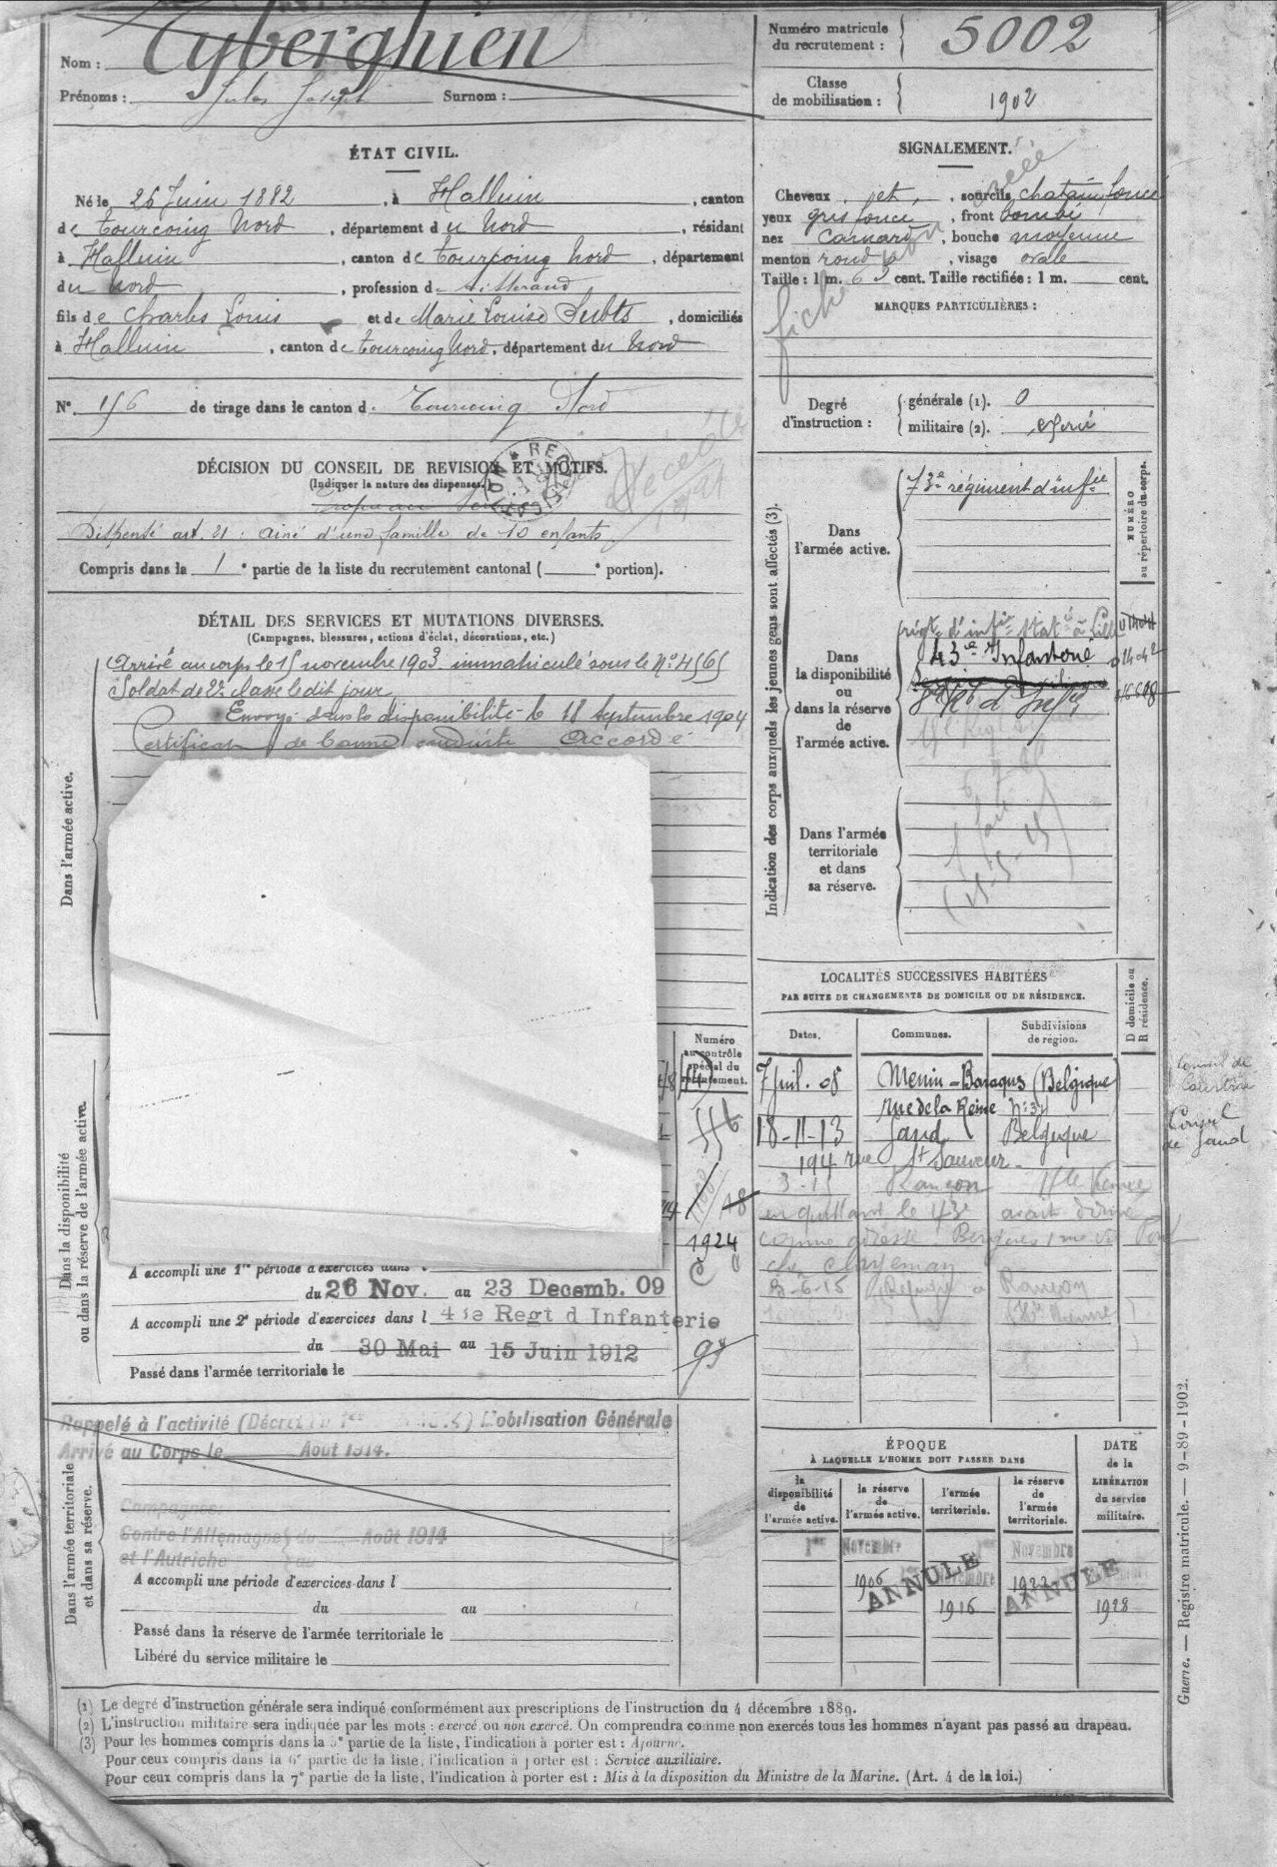 Nom : Tyberghien
Prénoms : Jules Joseph Surnom :
Numéro matricule du recrutement : 5002
Classe de mobilisation : 1902
ÉTAT CIVIL.
Né le 26 Juin 1882, à Halluin, canton
de Tourcoing Nord, département du Nord, résidant
à Halluin, canton de Tourcoing Nord, département
du Nord, profession de tisserand
fils de Charles Louis et de Marie Louise, domiciliés
à Halluin, canton de Tourcoing Nord, département du Nord
N° 156 de tirage dans le canton de Tourcoing Nord
SIGNALEMENT.
Cheveux et, sourcils chatain foncé
yeux gris foncé, front bombé
nez camard, bouche moyenne
menton rond, visage ovale
Taille : 1 m. 63 cent. Taille rectifiée : 1 m. cent.
MARQUES PARTICULIÈRES :
fiche
Degré d'instruction : générale (1). 0
militaire (2). exercé
DÉCISION DU CONSEIL DE REVISION ET MOTIFS.
(Indiquer la nature des dispenses.)
Dispensé art. 21 : ainé d'une famille de 10 enfants
Compris dans la 1e partie de la liste du recrutement cantonal ( e portion).
DÉTAIL DES SERVICES ET MUTATIONS DIVERSES.
(Campagnes, blessures, actions d'éclat, décorations, etc.)
Dans l'armée active.
Arrivé au corps le 15 novembre 1903 immatriculé sous le N° 4565
Soldat de 2e classe le dit jour
Envoyé dans la disponibilité le 18 septembre 1904
Certificat de bonne conduite accordé
Indication des corps auxquels les jeunes gens sont affectés (3).
NUMÉRO au répertoire du corps.
Dans l'armée active.
73e régiment d'infie
Dans la disponibilité ou dans la réserve de l'armée active.
régt d'infie stat é à Lille
43e Infanterie
Service Auxiliaire
8e Rgt d'Infie
Dans l'armée territoriale et dans sa réserve.
LOCALITÉS SUCCESSIVES HABITÉES
PAR SUITE DE CHANGEMENTS DE DOMICILE OU DE RÉSIDENCE.
D domicile ou R résidence.
Dates. Communes. Subdivisions de région.
7 Juil. 08 Menin-Baraques (Belgique)
rue de la Reine N° 34
18-11-13 Gand Belgique
194 rue St Sauveur
3-15 Rançon Hte Vienne
en quittant le 43e avait donné
comme adresse Bergues
3-6-15 Réfugié à Rançon
(Hte Vienne)
Consul de Gand
Dans la disponibilité ou dans la réserve de l'armée active.
Numéro au contrôle spécial du recrutement.
556
18
1924
A accompli une 1re période d'exercices dans
du 26 Nov. au 23 Decemb. 09
A accompli une 2e période d'exercices dans l 43e Regt d Infanterie
du 30 Mai au 15 Juin 1912
93
Passé dans l'armée territoriale le
Dans l'armée territoriale et dans sa réserve.
Rappelé à l'activité (Décret du 1er Mobilisation Générale
Arrivé au Corps le Août 1914.
Campagnes:
Contre l'Allemagne du Août 1914
et l'Autriche au
A accompli une période d'exercices dans l
du au
Passé dans la réserve de l'armée territoriale le
Libéré du service militaire le
ÉPOQUE
À LAQUELLE L'HOMME DOIT PASSER DANS
la disponibilité de l'armée active.
la réserve de l'armée active.
l'armée territoriale.
la réserve de l'armée territoriale.
DATE de la LIBÉRATION du service militaire.
1er Novembre 1er Novembre
1906 1922
ANNULÉ ANNULÉE
1916 1928
Guerre. — Registre matricule. — 9-89-1902.
(1) Le degré d'instruction générale sera indiqué conformément aux prescriptions de l'instruction du 4 décembre 1889.
(2) L'instruction militaire sera indiquée par les mots : exercé ou non exercé. On comprendra comme non exercés tous les hommes n'ayant pas passé au drapeau.
(3) Pour les hommes compris dans la 5e partie de la liste, l'indication à porter est : Ajourné.
Pour ceux compris dans la 6e partie de la liste, l'indication à porter est : Service auxiliaire.
Pour ceux compris dans la 7e partie de la liste, l'indication à porter est : Mis à la disposition du Ministre de la Marine. (Art. 4 de la loi.)